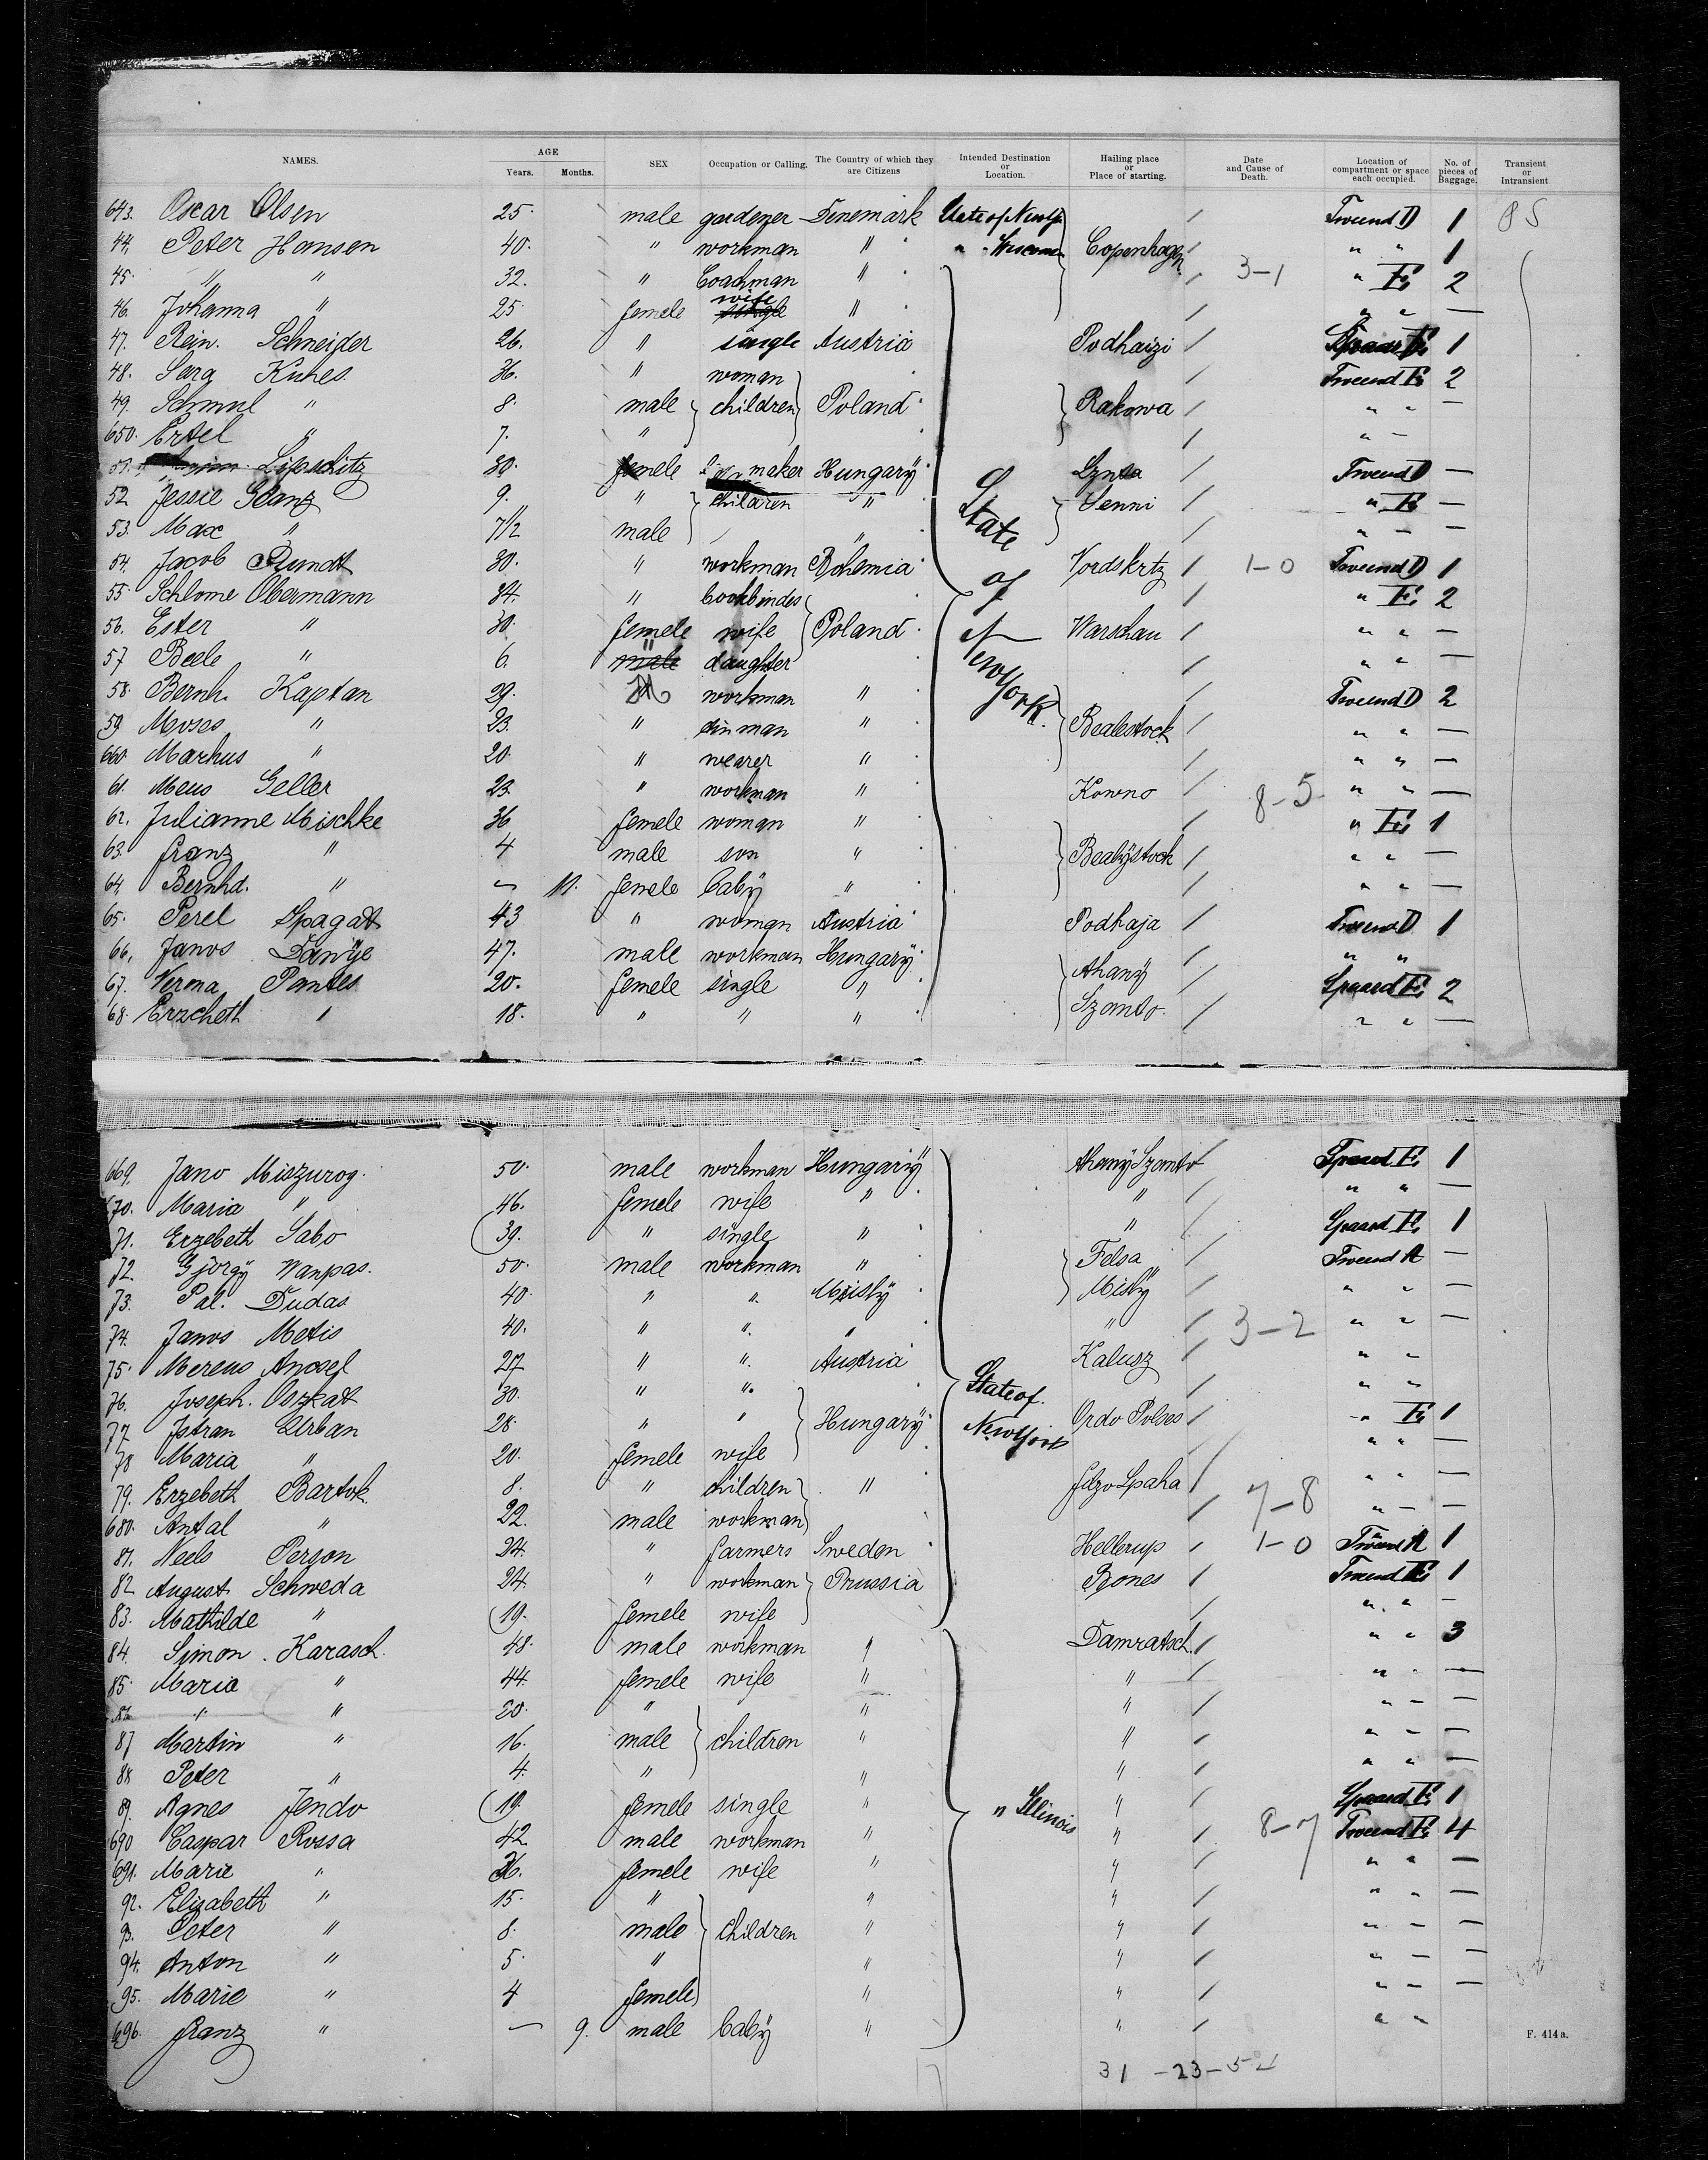 NAMES. AGE Years. Months. SEX Occupation or Calling. The Country of which they are Citizens Intended Destination or Location. Hailing place or Place of starting. Date and Cause of Death. Location of compartment or space each occupied. No. of pieces of Baggage. Transient or Intransient
643. Oscar Olsen 25. male gardener Denemark State of Copenhagen Tweend D 1
44. Peter Hansen 40. " workman " " " " 1
45. " " 32. " Coachman " 3-1 " E 2
46. Johanna " 25 femele wife single " " " —
47. Rein. Schneider 26. " single Austria Podhaizi 1
48. Sara Kunes. 36. " woman Tweend E 2
49. Schmul " 8. male children Poland Rakowa " " —
650. Ertel " 7. " " —
51. Lipschitz 30. femele maker Hungary Tweend D —
52 Jessie Glanz 9. " children " Senni " E —
53. Max " 7 1/2 male " " — —
54. Jacob Rundt 30. " workman Bohemia Vordskrtz 1-0 Tweend D 1
55 Schlome Obermann 34. " bookbindes State of New York " E 2
56. Ester " 30. femele wife Poland Warschau " " —
57 Beele " 6. male " daughter " " —
58. Bernh. Kaptan 29. workman " Tweend D 2
59 Moses " 23. " " Bealestock " " —
660 Markus " 20. " wearer " " " —
61. Meus Geller 23. " workman " Kowno 8-5 " " —
62. Julianne Mischke 36 femele woman " " E 1
63. Franz " 4 male son " Bealystock " " —
64. Bernhd. " — 11. femele baby " " " —
65. Perel Spagat 43 " woman Austria Podhaja Tweend D 1
66. Janos Danye 47. male workman Hungary " "
67. Verona Pantes 20. femele single " Ahany Spaard E 2
68. Erzcheth " 18. " " " Szomto " " —
669. Jano Miszurog. 50. male workman Hungariy Ahany Szomto Spaard E 1
670. Maria " 46. femele wife " " " " —
71. Erzebeth Sabo 39. " single " " Spaard E 1
72. Gjorgy Wanpas. 50. male workman " Felsa Tweend A —
73. Pal. Dudas 40. " " Misly Misly " " —
74. Janos Metis 40. " " " " 3-2 " " —
75. Mereus Anosel 27 " " Austria Kalusz " "
76. Joseph. Oszkat 30. " " State of " "
77 Istran Urban 28. " " Hungary New York Ordo Polses " E 1
78 Maria " 20. femele wife " " —
79. Erzebeth Bartok. 8. " children " Filzo Spaha " " —
680. Antal " 22. male workman 7-8 " — —
81. Neels Person 24. " farmers Sweden Hellerup 1-0 Tweend A 1
82 August Schweda 24. " workman Prussia Bones Tweend E 1
83. Mathilde " 19. femele wife " " —
84. Simon Karasch. 48. male workman " Damratsch " " 3
85. Maria " 44. femele wife " " " " —
86 " " 20. " " " " — —
87 Martin " 16. male children " " " — —
88 Peter " 4. " " " " " —
89. Agnes Jendo 19. femele single " " Illinois " Spaard E 1
690 Caspar Rossa 42 male workman " " 8-7 Tweend E 4
691. Marie " 36. femele wife " " " " —
92. Elizabeth " 15. " " " " " —
93. Peter " 8. male children " " " — —
94. Anton " 5. " " " " — —
95. Marie " 4 femele " " " — —
696. Franz " — 9. male baby " " " "
F. 414a.
31 -23-54